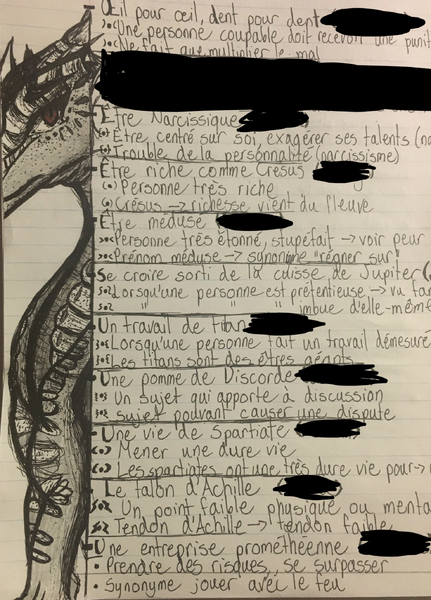 Œil pour œil, dent pour dent
Une personne coupable doit recevoir une punit
Ne fait que multiplier le mal
Être Narcissique
Être centré sur soi, exagérer ses talents (na
Trouble de la personnalité (narcissisme)
Être riche comme Crésus
Personne très riche
Crésus → richesse vient du fleuve
Être médusé
Personne très étonné, stupéfait → voir peur
Prénom méduse → synonime "régner sur"
Se croire sorti de la cuisse de Jupiter (
Lorsqu'une personne est prétentieuse → vu
" " " imbue d'elle-même
Un travail de titan
Lorsqu'une personne fait un travail démesuré
Les titans sont des êtres géants
Une pomme de Discorde
Un sujet qui apporte à discussion
sujet pouvant causer une dispute
Une vie de Spartiate
Mener une dure vie
Les spartiates ont une très dure vie pour →
Le talon d'Achille
Un point faible physique ou menta
Tendon d'Achille → tendon faible
Une entreprise prométhéenne
Prendre des risques, se surpasser
Synonyme jouer avec le feu